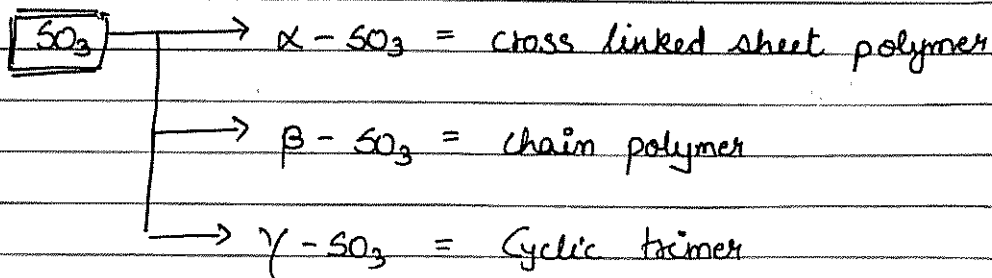 SO₃ → α - SO₃ = cross linked sheet polymer
→ β - SO₃ = chain polymer
→ γ - SO₃ = Cyclic trimer